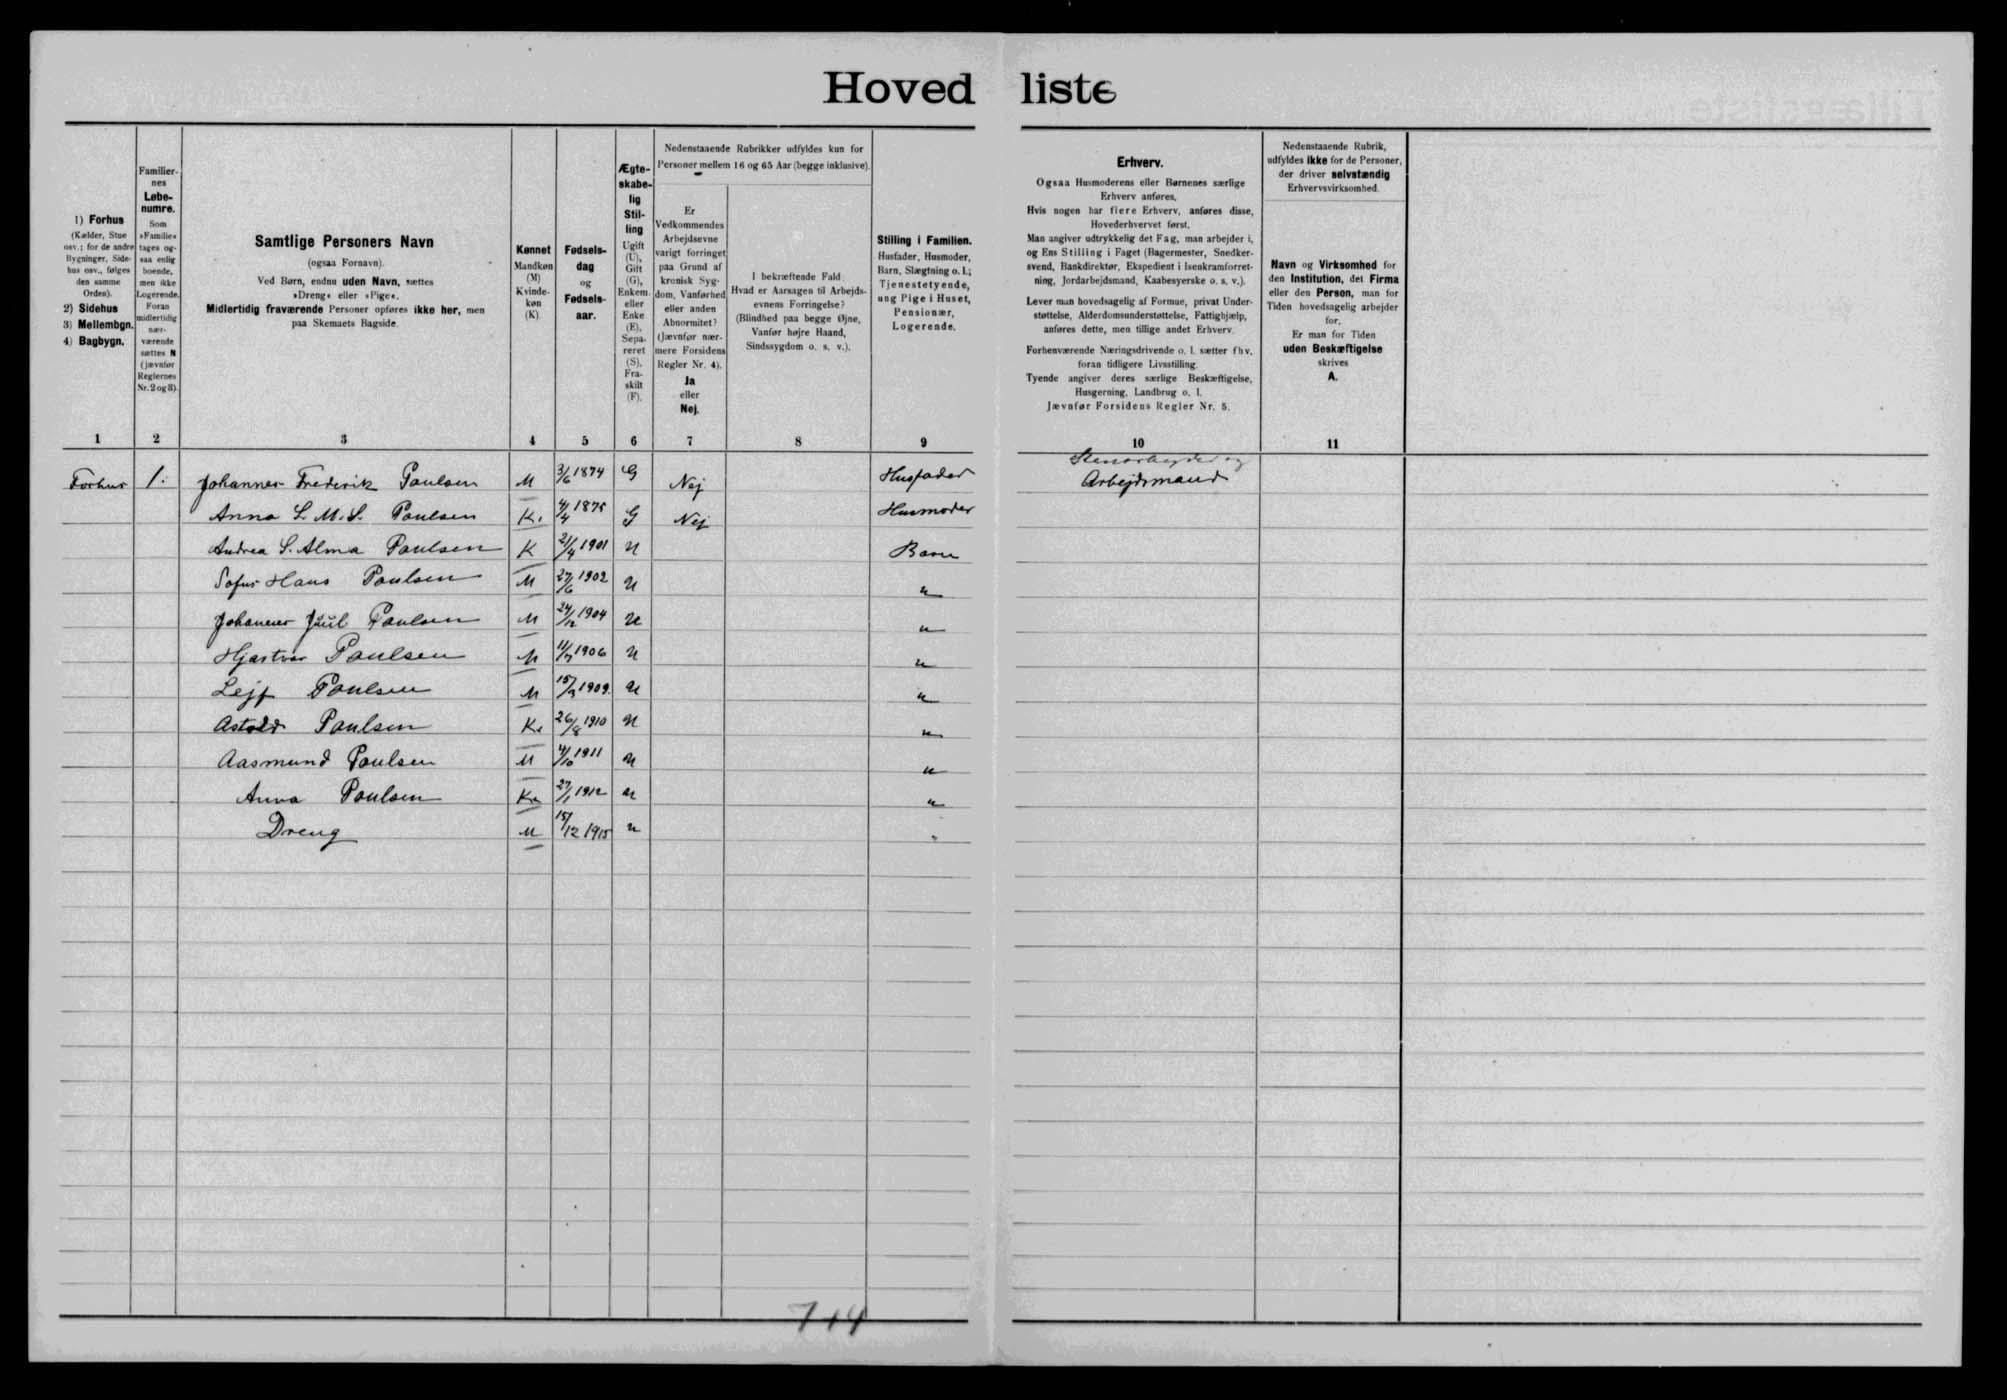 Hovedliste
1) Forhus
(Kælder, Stue
osv.; for de andre
Bygninger, Side-
hus osv., følges
den samme
Orden).
2) Sidehus
3) Mellembgn.
4) Bagbygn.
Familier-
nes
Løbe-
numre.
Som
»Familie«
tages og-
saa enlig
boende,
men ikke
Logerende.
Foran
midlertidig
nær-
værende
sættes N
(jævnfør
Reglernes
Nr. 2 og 8).
Samtlige Personers Navn
(ogsaa Fornavn).
Ved Børn, endnu uden Navn, sættes
»Dreng« eller »Pige«.
Midlertidig fraværende Personer opføres ikke her, men
paa Skemaets Bagside.
Kønnet
Mandkøn
(M)
Kvinde-
køn
(K).
Fødsels-
dag
og
Fødsels-
aar.
Ægte-
skabe-
lig
Stil-
ling
Ugift
(U),
Gift
(G),
Enkem.
eller
Enke
(E),
Sepa-
reret
(S),
Fra-
skilt
(F).
Nedenstaaende Rubrikker udfyldes kun for
Personer mellem 16 og 65 Aar (begge inklusive).
Er
Vedkommendes
Arbejdsevne
varigt forringet
paa Grund af
kronisk Syg-
dom, Vanførhed
eller anden
Abnormitet?
(Jævnfør nær-
mere Forsidens
Regler Nr. 4).
Ja
eller
Nej.
I bekræftende Fald:
Hvad er Aarsagen til Arbejds-
evnens Forringelse?
(Blindhed paa begge Øjne,
Vanfør højre Haand,
Sindssygdom o. s. v.).
Stilling i Familien.
Husfader, Husmoder,
Barn, Slægtning o. l.;
Tjenestetyende,
ung Pige i Huset,
Pensionær,
Logerende.
Erhverv.
Ogsaa Husmoderens eller Børnenes særlige
Erhverv anføres.
Hvis nogen har flere Erhverv, anføres disse,
Hovederhvervet først.
Man angiver udtrykkelig det Fag, man arbejder i,
og Ens Stilling i Faget (Bagermester, Snedker-
svend, Bankdirektør, Ekspedient i Isenkramforret-
ning, Jordarbejdsmand, Kaabesyerske o. s. v.).
Lever man hovedsagelig af Formue, privat Under-
støttelse, Alderdomsunderstøttelse, Fattighjælp,
anføres dette, men tillige andet Erhverv.
Forhenværende Næringsdrivende o. l. sætter fhv.
foran tidligere Livsstilling.
Tyende angiver deres særlige Beskæftigelse,
Husgerning, Landbrug o. l.
Jævnfør Forsidens Regler Nr. 5.
Nedenstaaende Rubrik,
udfyldes ikke for de Personer,
der driver selvstændig
Erhvervsvirksomhed.
Navn og Virksomhed for
den Institution, det Firma
eller den Person, man for
Tiden hovedsagelig arbejder
for.
Er man for Tiden
uden Beskæftigelse
skrives
A.
1 2 3 4 5 6 7 8 9 10 11
Forhus 1. Johannes Frederik Poulsen M 3/6 1874 G Nej Husfader Stenarbejder og
Arbejdsmand
Anna S. M. S. Poulsen K. 4/4 1875 G Nej Husmoder
Andrea S. Alma Poulsen K 21/4 1901 U Barn
Sofus Hans Poulsen M 27/6 1902 U "
Johannes Juul Poulsen M 24/12 1904 U "
Hjastvar Poulsen M 11/7 1906 U "
Lejf Poulsen M 15/3 1909. U "
Astald Poulsen K. 26/8 1910 U "
Aasmund Poulsen M 4/10 1911 U "
Anna Poulsen K. 27/1 1912 U "
Dreng M 15/12 1915 U "
714